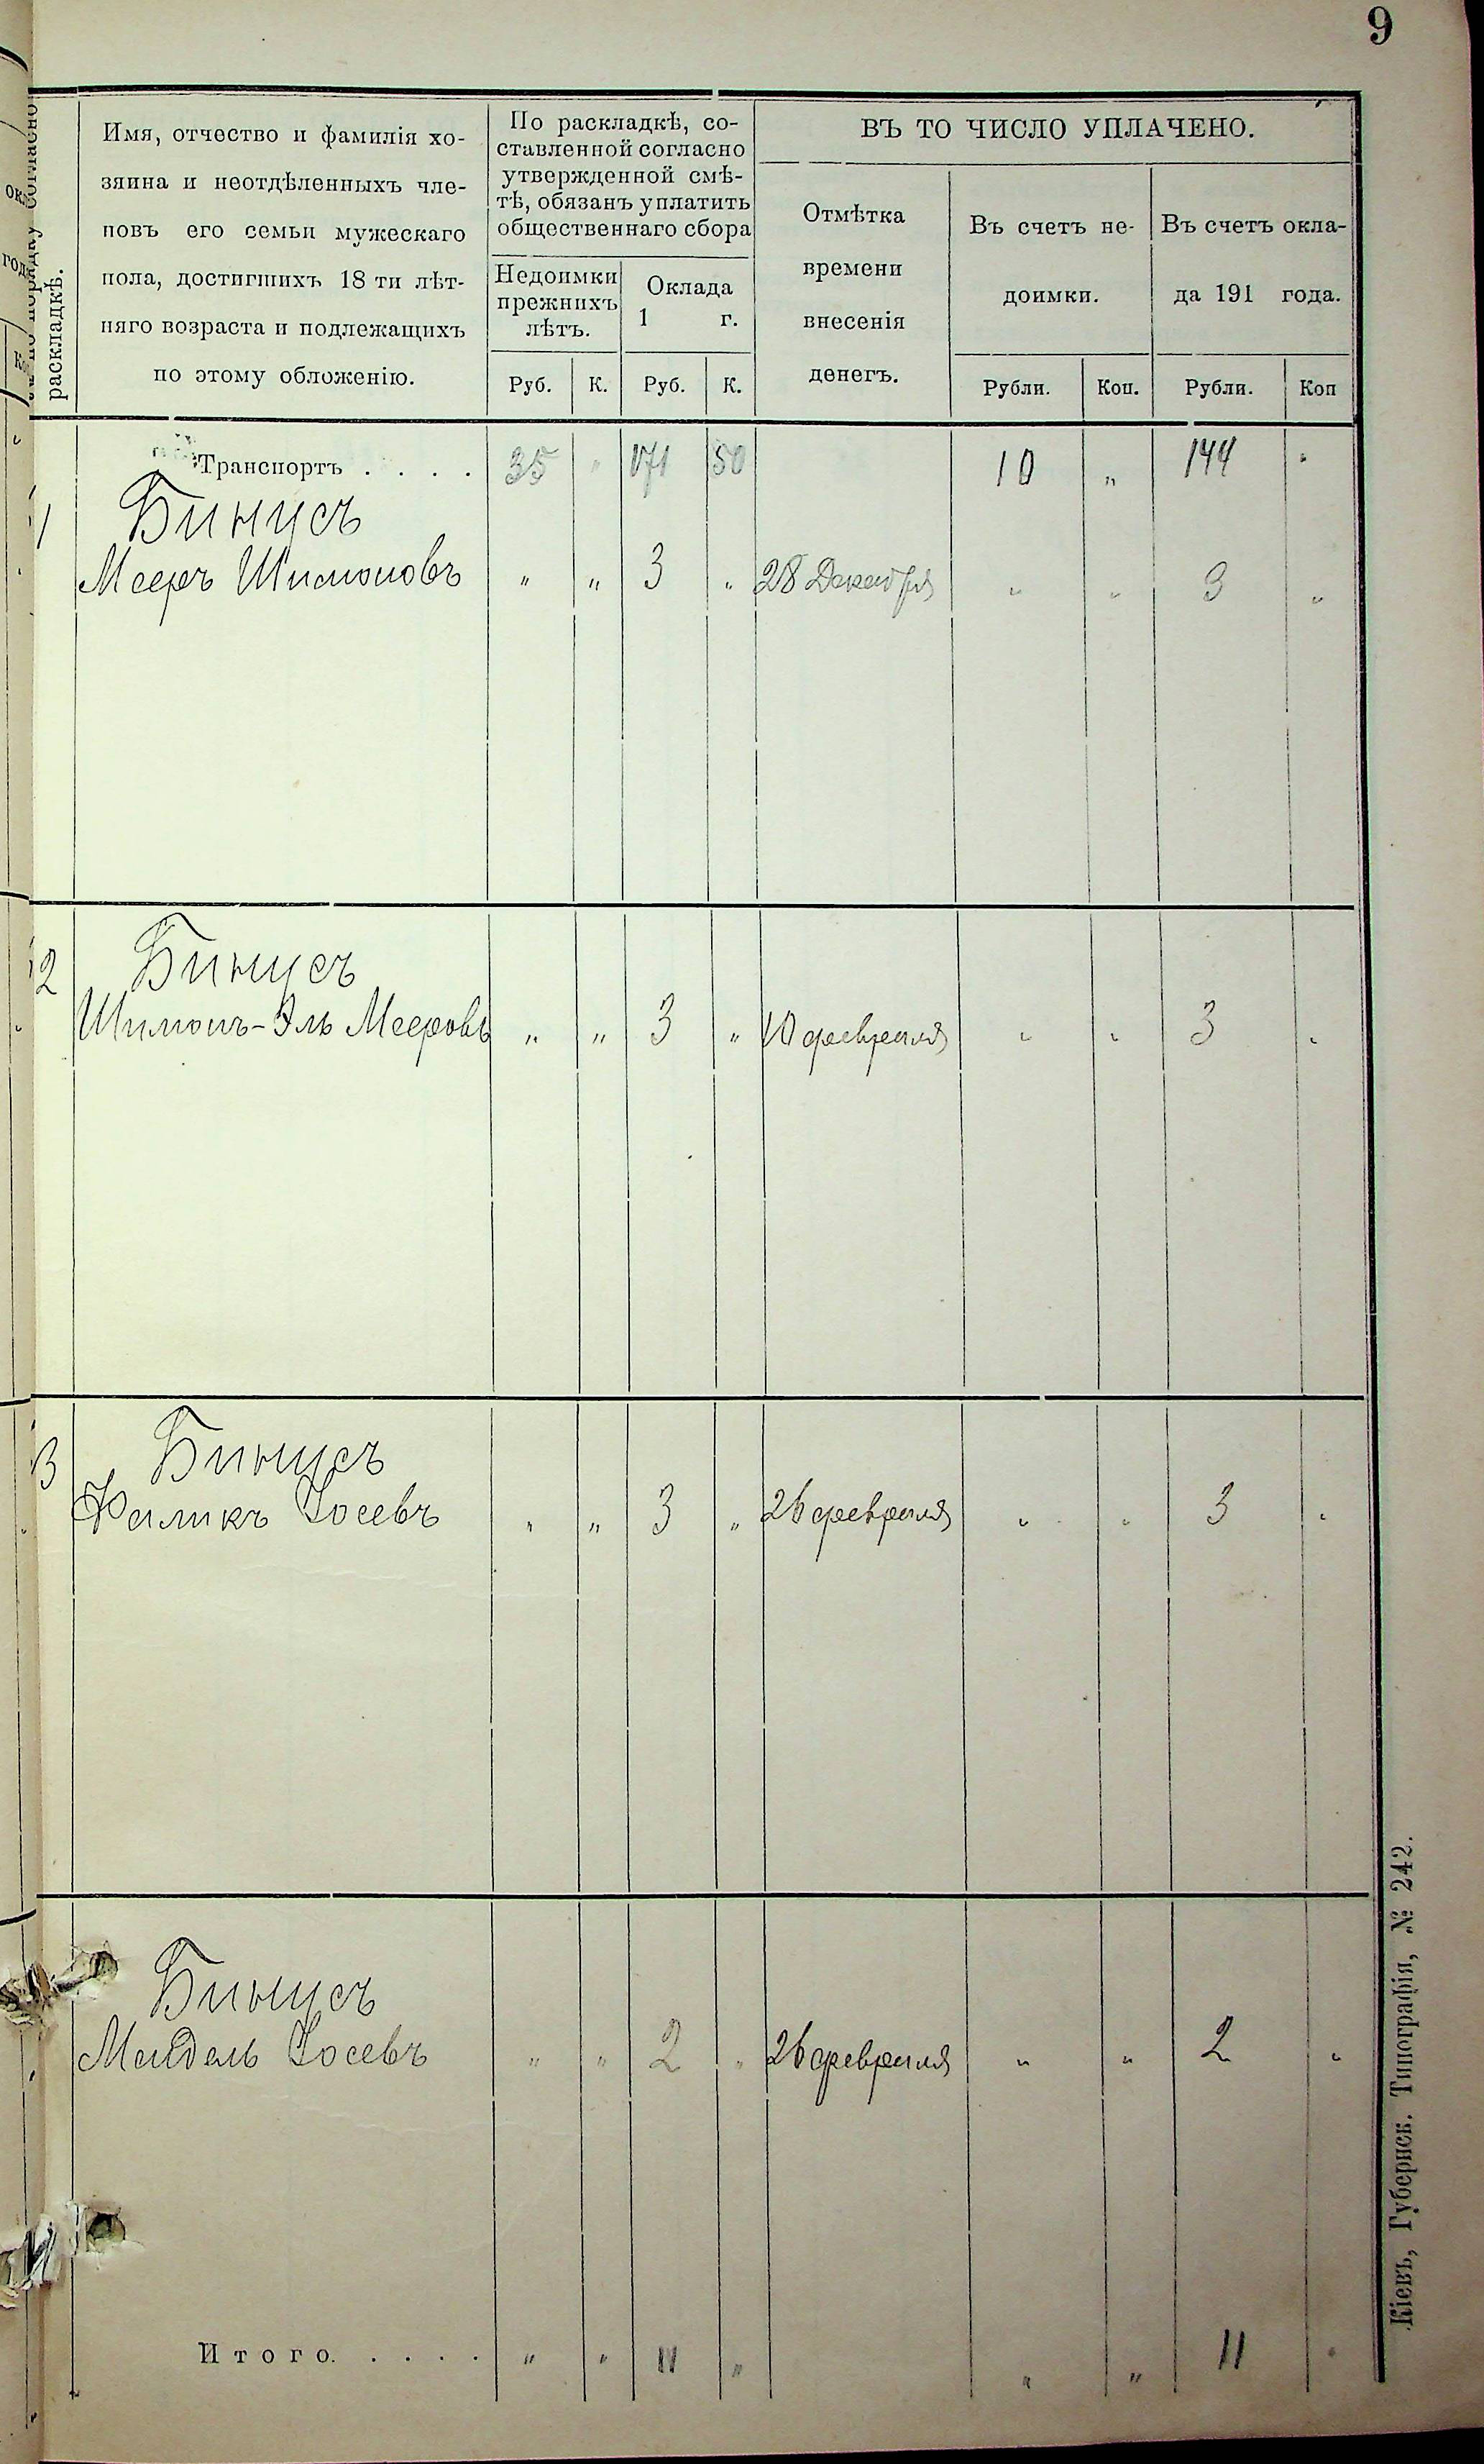 9
№ по порядку согласно
раскладкѣ.
Имя, отчество и фамилія хо-
зяина и неотдѣленныхъ чле-
новъ его семьи мужескаго
пола, достигшихъ 18 ти лѣт-
няго возраста и подлежащихъ
по этому обложенію.
По раскладкѣ, со-
ставленной согласно
утвержденной смѣ-
тѣ, обязанъ уплатить
общественнаго сбора
Недоимки
прежнихъ
лѣтъ.
Оклада
1 г.
Руб. К. Руб. К.
ВЪ ТО ЧИСЛО УПЛАЧЕНО.
Отмѣтка
времени
внесенія
денегъ.
Въ счетъ не-
доимки.
Въ счетъ окла-
да 191 года.
Рубли. Коп. Рубли. Коп
Транспортъ . . . . 35 " 171 50 10 " 144 "
1 Бинусъ
Мееръ Шимоновъ " " 3 " 28 Декабря " " 3 "
2 Бинусъ
Шимонъ-Эль Мееровъ " " 3 " 10 февраля " " 3 "
3 Бинусъ
Фаликъ Іосевъ " " 3 " 26 февраля " " 3 "
Бинусъ
Мандель Іосевъ " " 2 " 26 февраля " " 2 "
Итого. . . . . " " 11 " " " 11 "
Кіевъ, Губернск. Типографія, № 242.